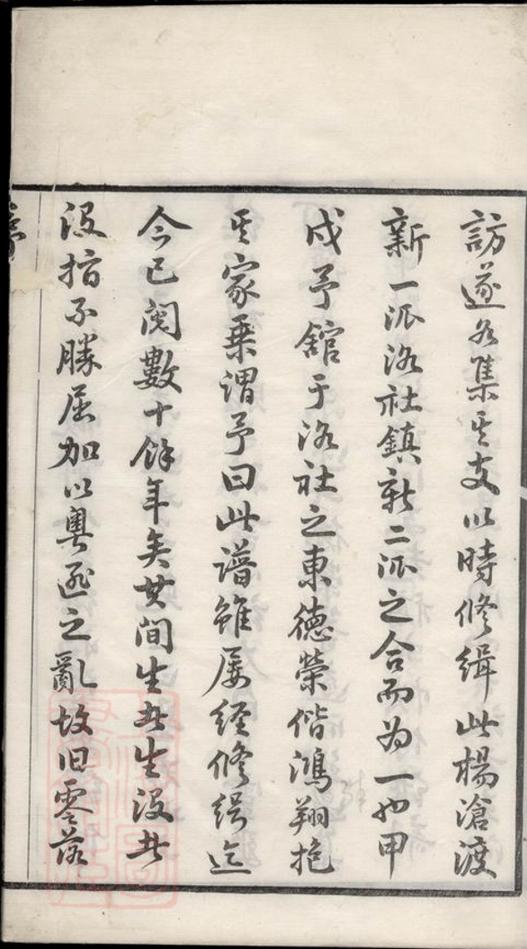 訪遂各集其支以時修緝此楊滄渡
新一派洛社鎮新二派之合而為一也甲
戌予館于洛社之東德榮偕鴻翔抱
其家乗謂予曰此譜雖屡經修緝迄
今已閲數十餘年矣其間生者生没者
没指不勝屈加以粵逆之亂故旧零落